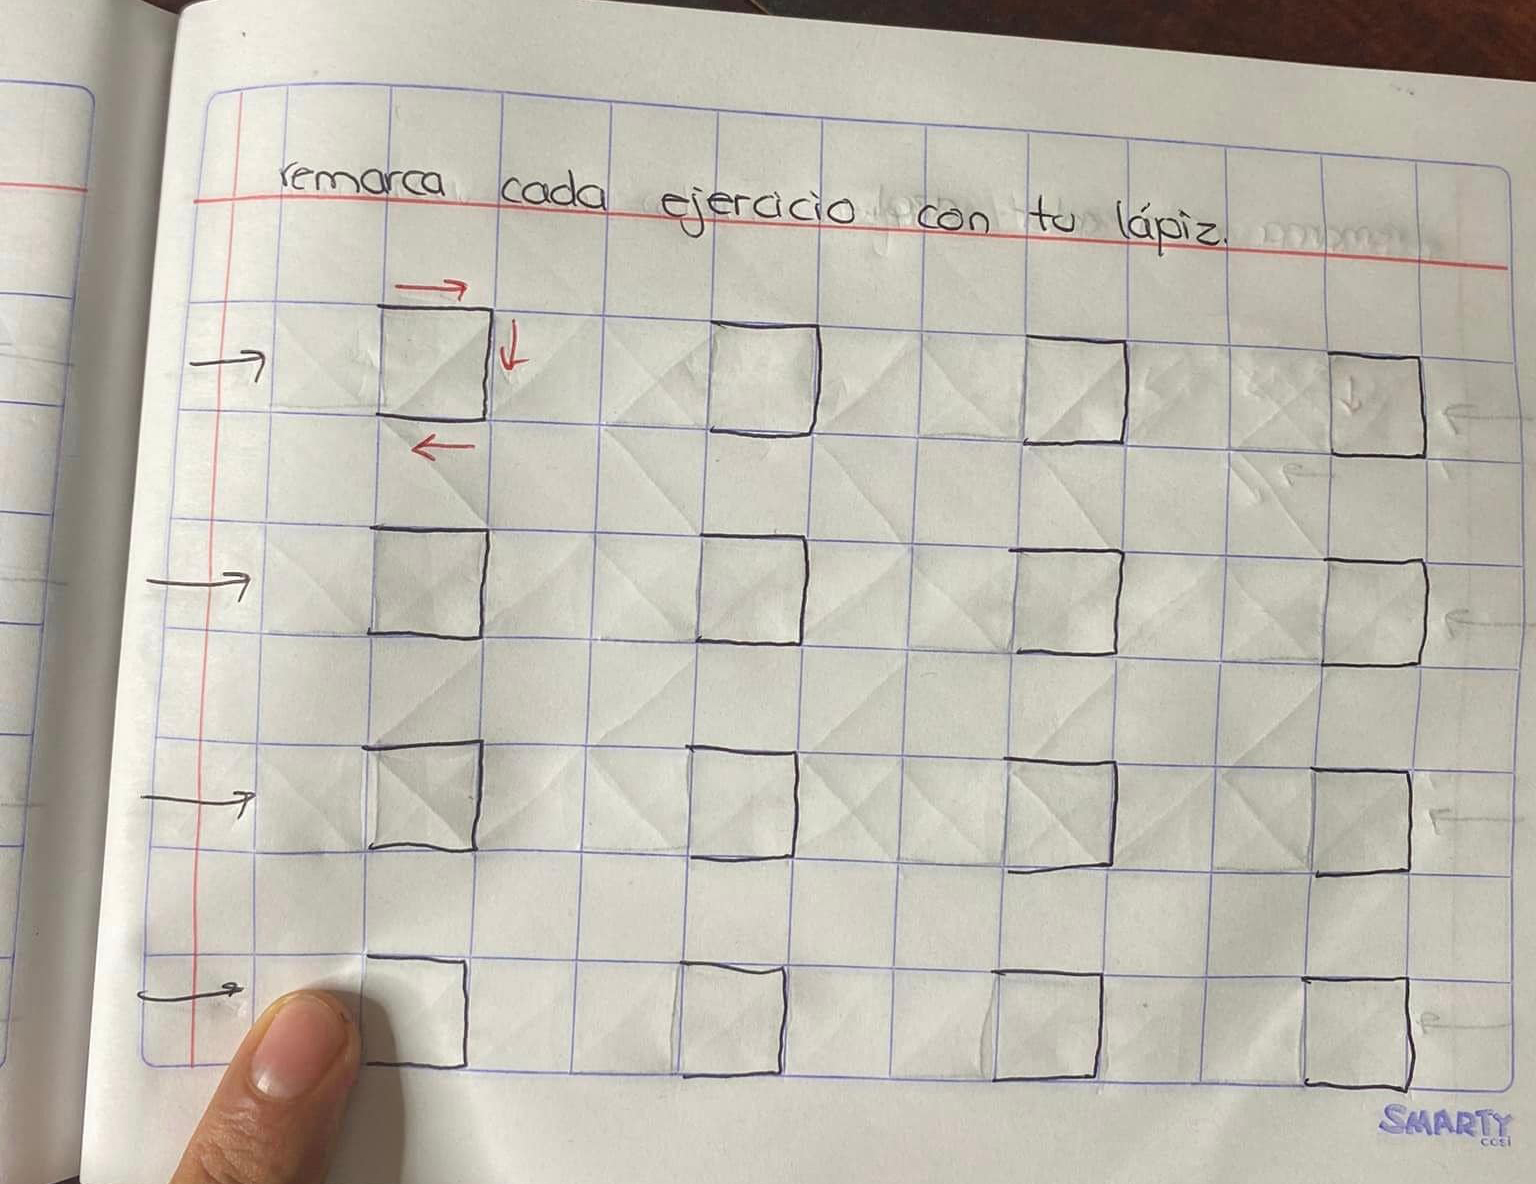 remarca cada ejercicio con tu lápiz.
SMARTY
cosi